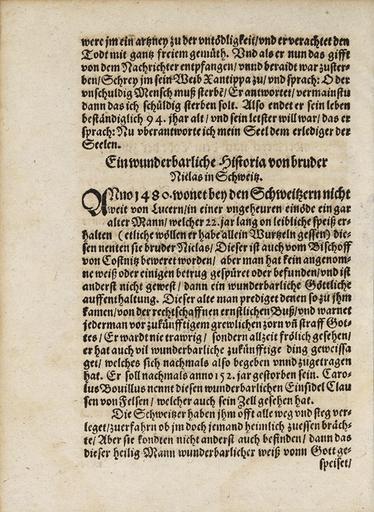 were jm ein artzney zu der vntödligkeit/vnd er verachtet den
Todt mit gantz freiem gemüth. Vnd als er nun das gifft
von dem Nachrichter entpfangen/vnnd beraidt war zuster-
ben/Schrey jm sein Weib Xantippa zu/vnd sprach: O der
vnschuldig Mensch muß sterbē/Er antwortet/vermainstu
dann das ich schuldig sterben solt. Also endet er sein leben
beständiglich 94. jhar alt/vnd sein letster will war/das er
sprach: Nu vberantworte ich mein Seel dem erlediger der
Seelen.
Ein wunderbarliche Historia von bruder
Niclas in Schweitz.
ANno 1480. wonet bey den Schweitzern nicht
weit von Lucern/in einer vngeheuren einöde ein gar
alter Mann/welcher 22. jar lang on leibliche speiß er-
halten (etliche wöllen er habe allein Wurtzeln gessen) die-
sen nenten sie bruder Niclas/Dieser ist auch vom Bischoff
von Costnitz beweret worden/aber man hat kein angenom-
ne weiß oder einigen betrug gespüret oder befunden/vnd ist
anderst nicht gewest/dann ein wunderbarliche Göttliche
auffenthaltung. Dieser alte man prediget denen so zu jhm
kamen/von der rechtschaffnen ernstlichen Buß/vnd warnet
jederman vor zukünfftigem grewlichen zorn vñ straff Got-
tes/Er wardt nie trawrig/sondern allzeit frölich gesehen/
er hat auch vil wunderbarliche zukünfftige ding geweissa
get/welches sich nachmals also begeben vnnd zugetragen
hat. Er soll nachmals anno 152. jar gestorben sein. Caro-
lus Bouillus nennt diesen wunderbarlichen Einsidel Clau
sen von Felsen/welcher auch sein Zell gesehen hat.
Die Schweitzer haben jhm offt alle weg vnd steg ver-
leget/zuerfahrn ob jm doch jemand heimlich zuessen bräch-
te/Aber sie kondten nicht anderst auch befinden/dann das
dieser heilig Mann wunderbarlicher weiß vonn Gott ge-
speiset/